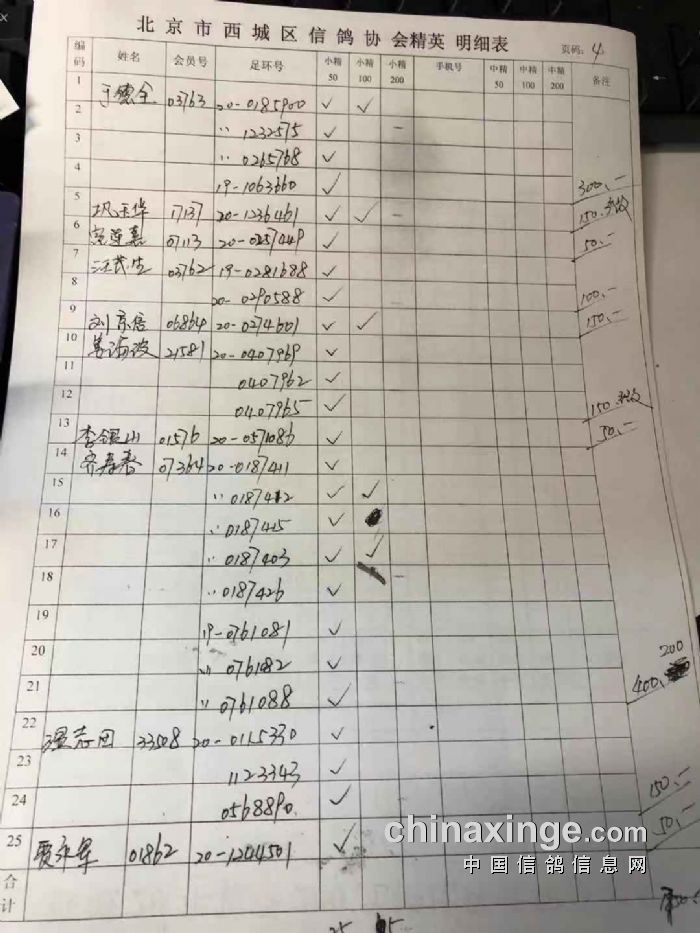 北京市西城区信鸽协会精英 明细表
页码: 4
编码 姓名 会员号 足环号 小精50 小精100 小精200 手机号 中精50 中精100 中精200 备注
1 于德全 03763 20-0185900 ✓ ✓
2 〃 1232575 ✓ -
3 〃 0265768 ✓
4 19-1063660 ✓ 300.-
5 巩玉华 17137 20-1236461 ✓ ✓ - 150.
6 07113 20-0257449 ✓ 50.-
7 汪茂生 03762 19-0281688 ✓
8 20-0290588 ✓ 100.-
9 刘京倍 06864 20-0274601 ✓ ✓ 150.-
10 21581 20-0407969 ✓
11 0407962 ✓
12 0407965 ✓ 150.
13 李银山 01576 20-0571086 ✓ 50.-
14 齐寿春 07364 20-0187411 ✓
15 〃 0187412 ✓ ✓
16 〃 0187415 ✓
17 〃 0187403 ✓ ✓
18 〃 0187426 ✓ -
19 19-0761081 ✓
20 〃 0761082 ✓ 200
21 〃 0761088 ✓ 400.
22 温志田 33508 20-0115330 ✓
23 1123343 ✓
24 0568890. ✓ 150.-
25 贾永军 01862 20-1244501 ✓ 50.-
合计
chinaxinge.com
中国信鸽信息网